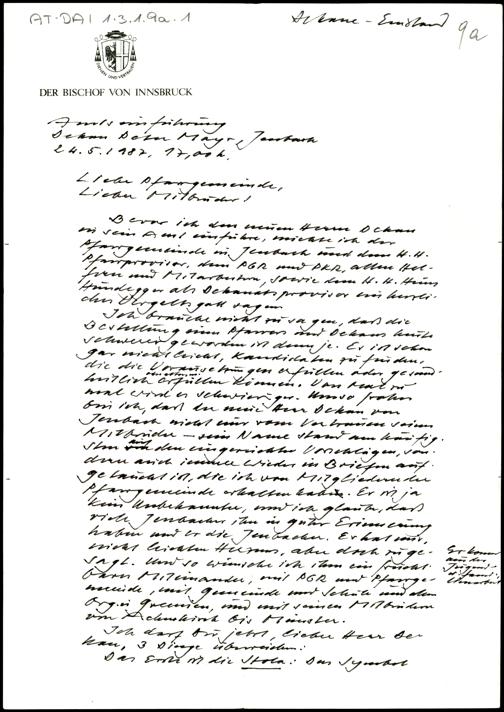 AT-DAI 1.3.1.9a.1
Dekane - Emsland
9a
DIENEN UND VERTRAUEN
DER BISCHOF VON INNSBRUCK
Amtseinführung
Dekan Peter Mayr, Jenbach
24.5.1987, 17,00 h.
Liebe Pfarrgemeinde,
Lieber Mitbrüder!
Bevor ich den neuen Herrn Dekan
in sein Amt einführe, möchte ich der
Pfarrgemeinde in Jenbach und dem H.H.
Pfarrprovisor, dem PGR und PKR, allen Hel-
fern und Mitarbeitern, sowie dem H.H. Hans
Hundegger als Dekanatsprovisor ein herzli-
ches Vergelts gott sagen.
Ich brauche nicht zu sagen, daß die
Bestellung eines Pfarrers und Dekans heute
schwerer geworden ist denn je. Es ist schon
gar nicht leicht, Kandidaten zu finden,
die die Voraussetzungen erfüllen oder gesund-
heitlich erfüllen können. Von Mal zu
mal wird es schwieriger. Umso froher
bin ich, daß der neue Herr Dekan von
Jenbach nicht nur vom Vertrauen seiner
Mitbrüder - sein Name stand am häufig-
sten auf den eingereichten Vorschlägen, son-
dern auch immer wieder in Briefen auf-
getaucht ist, die ich von Mitgliedern der
Pfarrgemeinde erhalten habe. Er ist ja
kein Unbekannter, und ich glaube, daß
viele Jenbacher ihn in guter Erinnerung
haben und er die Jenbacher. Er hat nur,
nicht leichten Herzens, aber doch zuge-
sagt. Und so wünsche ich ihm ein frucht-
bares Miteinander, mit PGR und Pfarrge-
meinde, mit Gemeinde und Schule und den
Org. Gremien, und mit seinen Mitbrüdern
von Achenkirch bis Münster.
Er kommt
aus der
Jugend-
Ich darf Dir jetzt, lieber Herr De-
kan, 3 Dinge überreichen:
Das Erste ist die Stola: Das Symbol